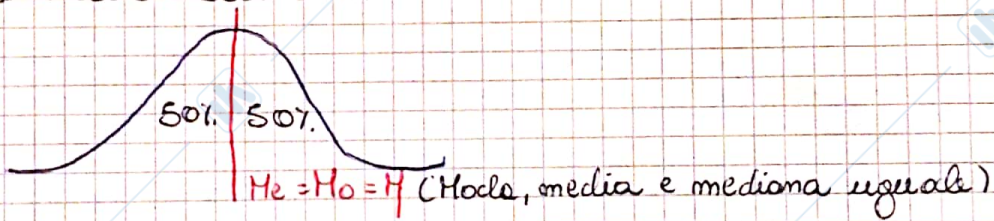 50%. 50%.
Me = Mo = M (Moda, media e mediana uguale)